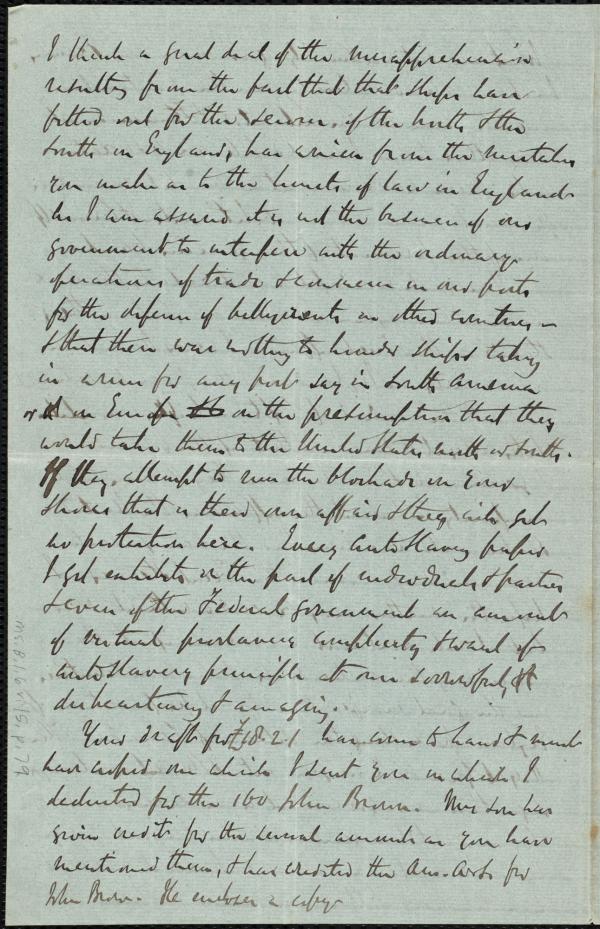 I think a great deal of the misapprehension
resulting from the fact that that ships have
fitted out for the service of the North & the
South in England, has arisen from the mistake
you make as to the limits of law in England
As I am assured it is not the business of our
government to interfere with the ordinary
operations of trade & commerce in our ports
for the defence of belligerents in other countries –
& that there was nothing to hinder ships taking
in arms for any port say in South America
or in Europe on the presumption that they
would take them to the United States north or south.
If they attempt to run the blockade on your
shores that is their own affair & they will get
no protection here. Every Anti Slavery paper
I get exhibits on the part of individuals & parties
& even of the Federal government an amount
of virtual proslavery complicity & want of
anti Slavery principle at once sorrowful,
disheartening & amazing.
Your draft for £18.2.1 has come to hand & must
have crossed one which I sent you in which I
deducted for the 100 John Brown. My son has
given credit for the several amounts as you have
mentioned them, & has credited the for
John Brown. He encloses a copy
Ms. B.1.6 v.13, p. 79